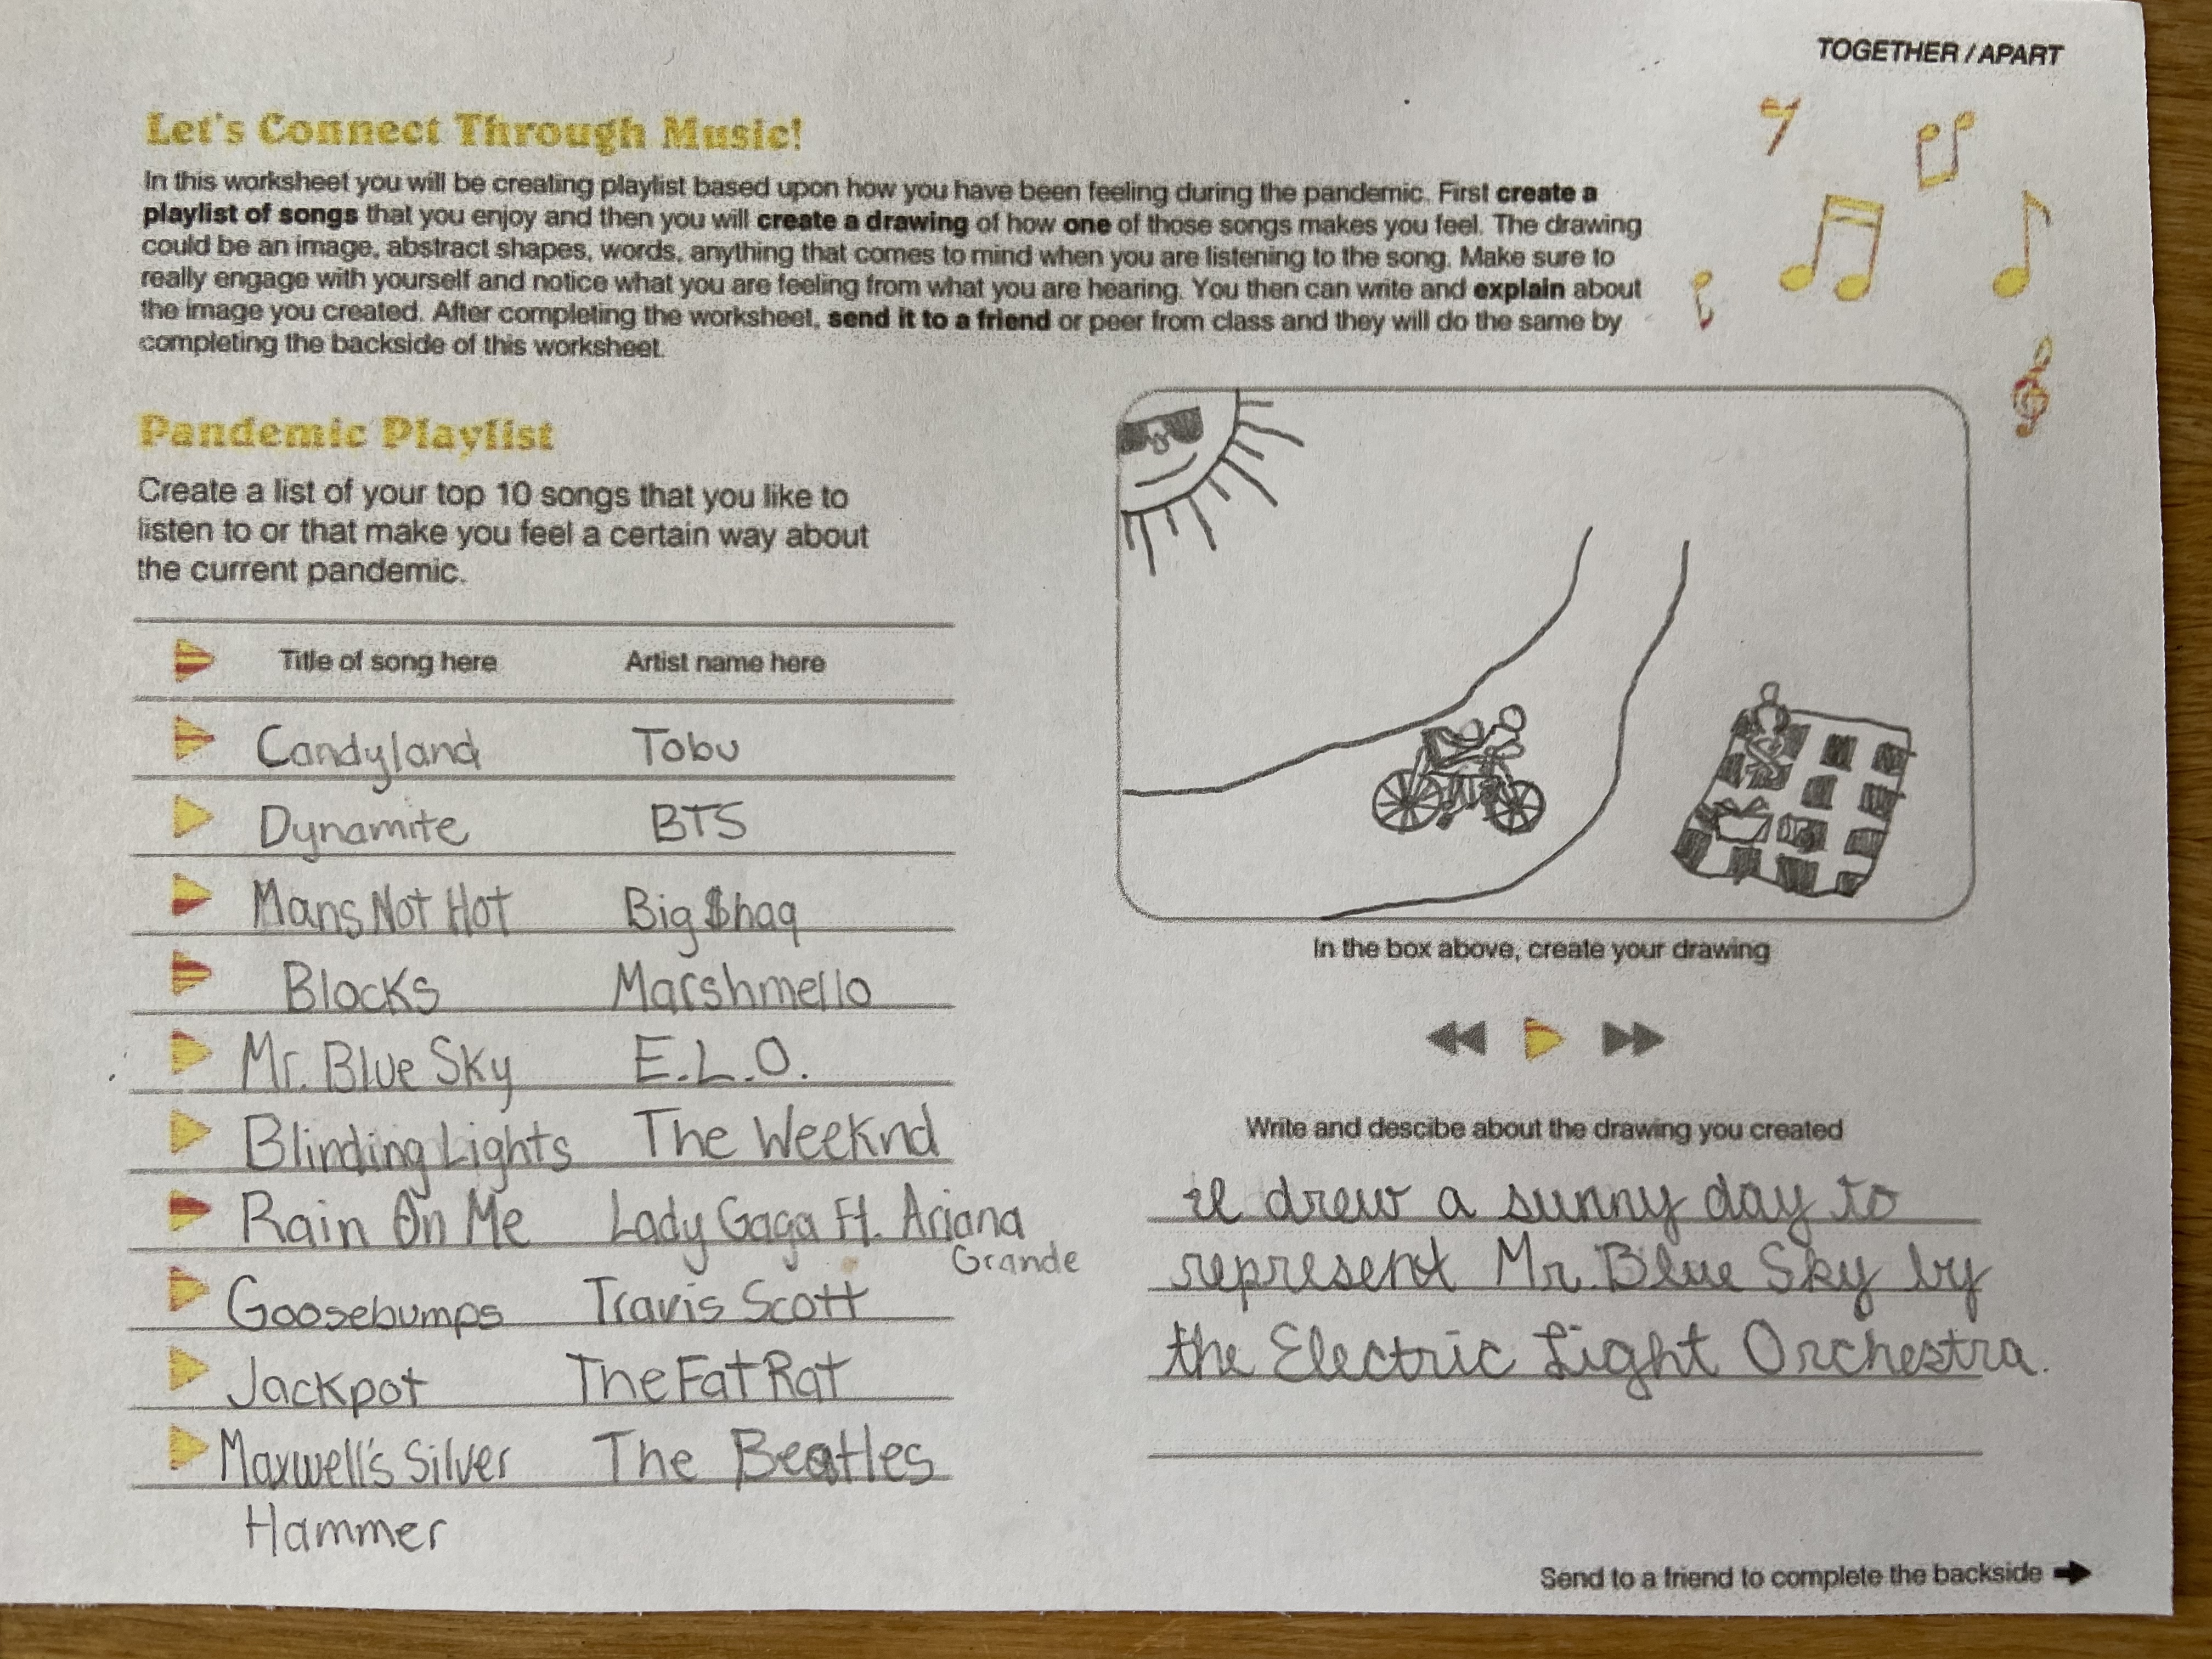 TOGETHER / APART
Let's Connect Through Music!
In this worksheet you will be creating playlist based upon how you have been feeling during the pandemic. First create a
playlist of songs that you enjoy and then you will create a drawing of how one of those songs makes you feel. The drawing
could be an image, abstract shapes, words, anything that comes to mind when you are listening to the song. Make sure to
really engage with yourself and notice what you are feeling from what you are hearing. You then can write and explain about
the image you created. After completing the worksheet, send it to a friend or peer from class and they will do the same by
completing the backside of this worksheet.
Pandemic Playlist
Create a list of your top 10 songs that you like to
listen to or that make you feel a certain way about
the current pandemic.
Title of song here Artist name here
Candyland Tobu
Dynamite BTS
Mans Not Hot Big $haq
Blocks Marshmello
Mr. Blue Sky E.L.O.
Blinding Lights The Weeknd
Rain On Me Lady Gaga Ft. Ariana
Grande
Goosebumps Travis Scott
Jackpot TheFatRat
Maxwell's Silver The Beatles
Hammer
In the box above, create your drawing
Write and descibe about the drawing you created
I drew a sunny day to
represent Mr. Blue Sky by
the Electric Light Orchestra.
Send to a friend to complete the backside